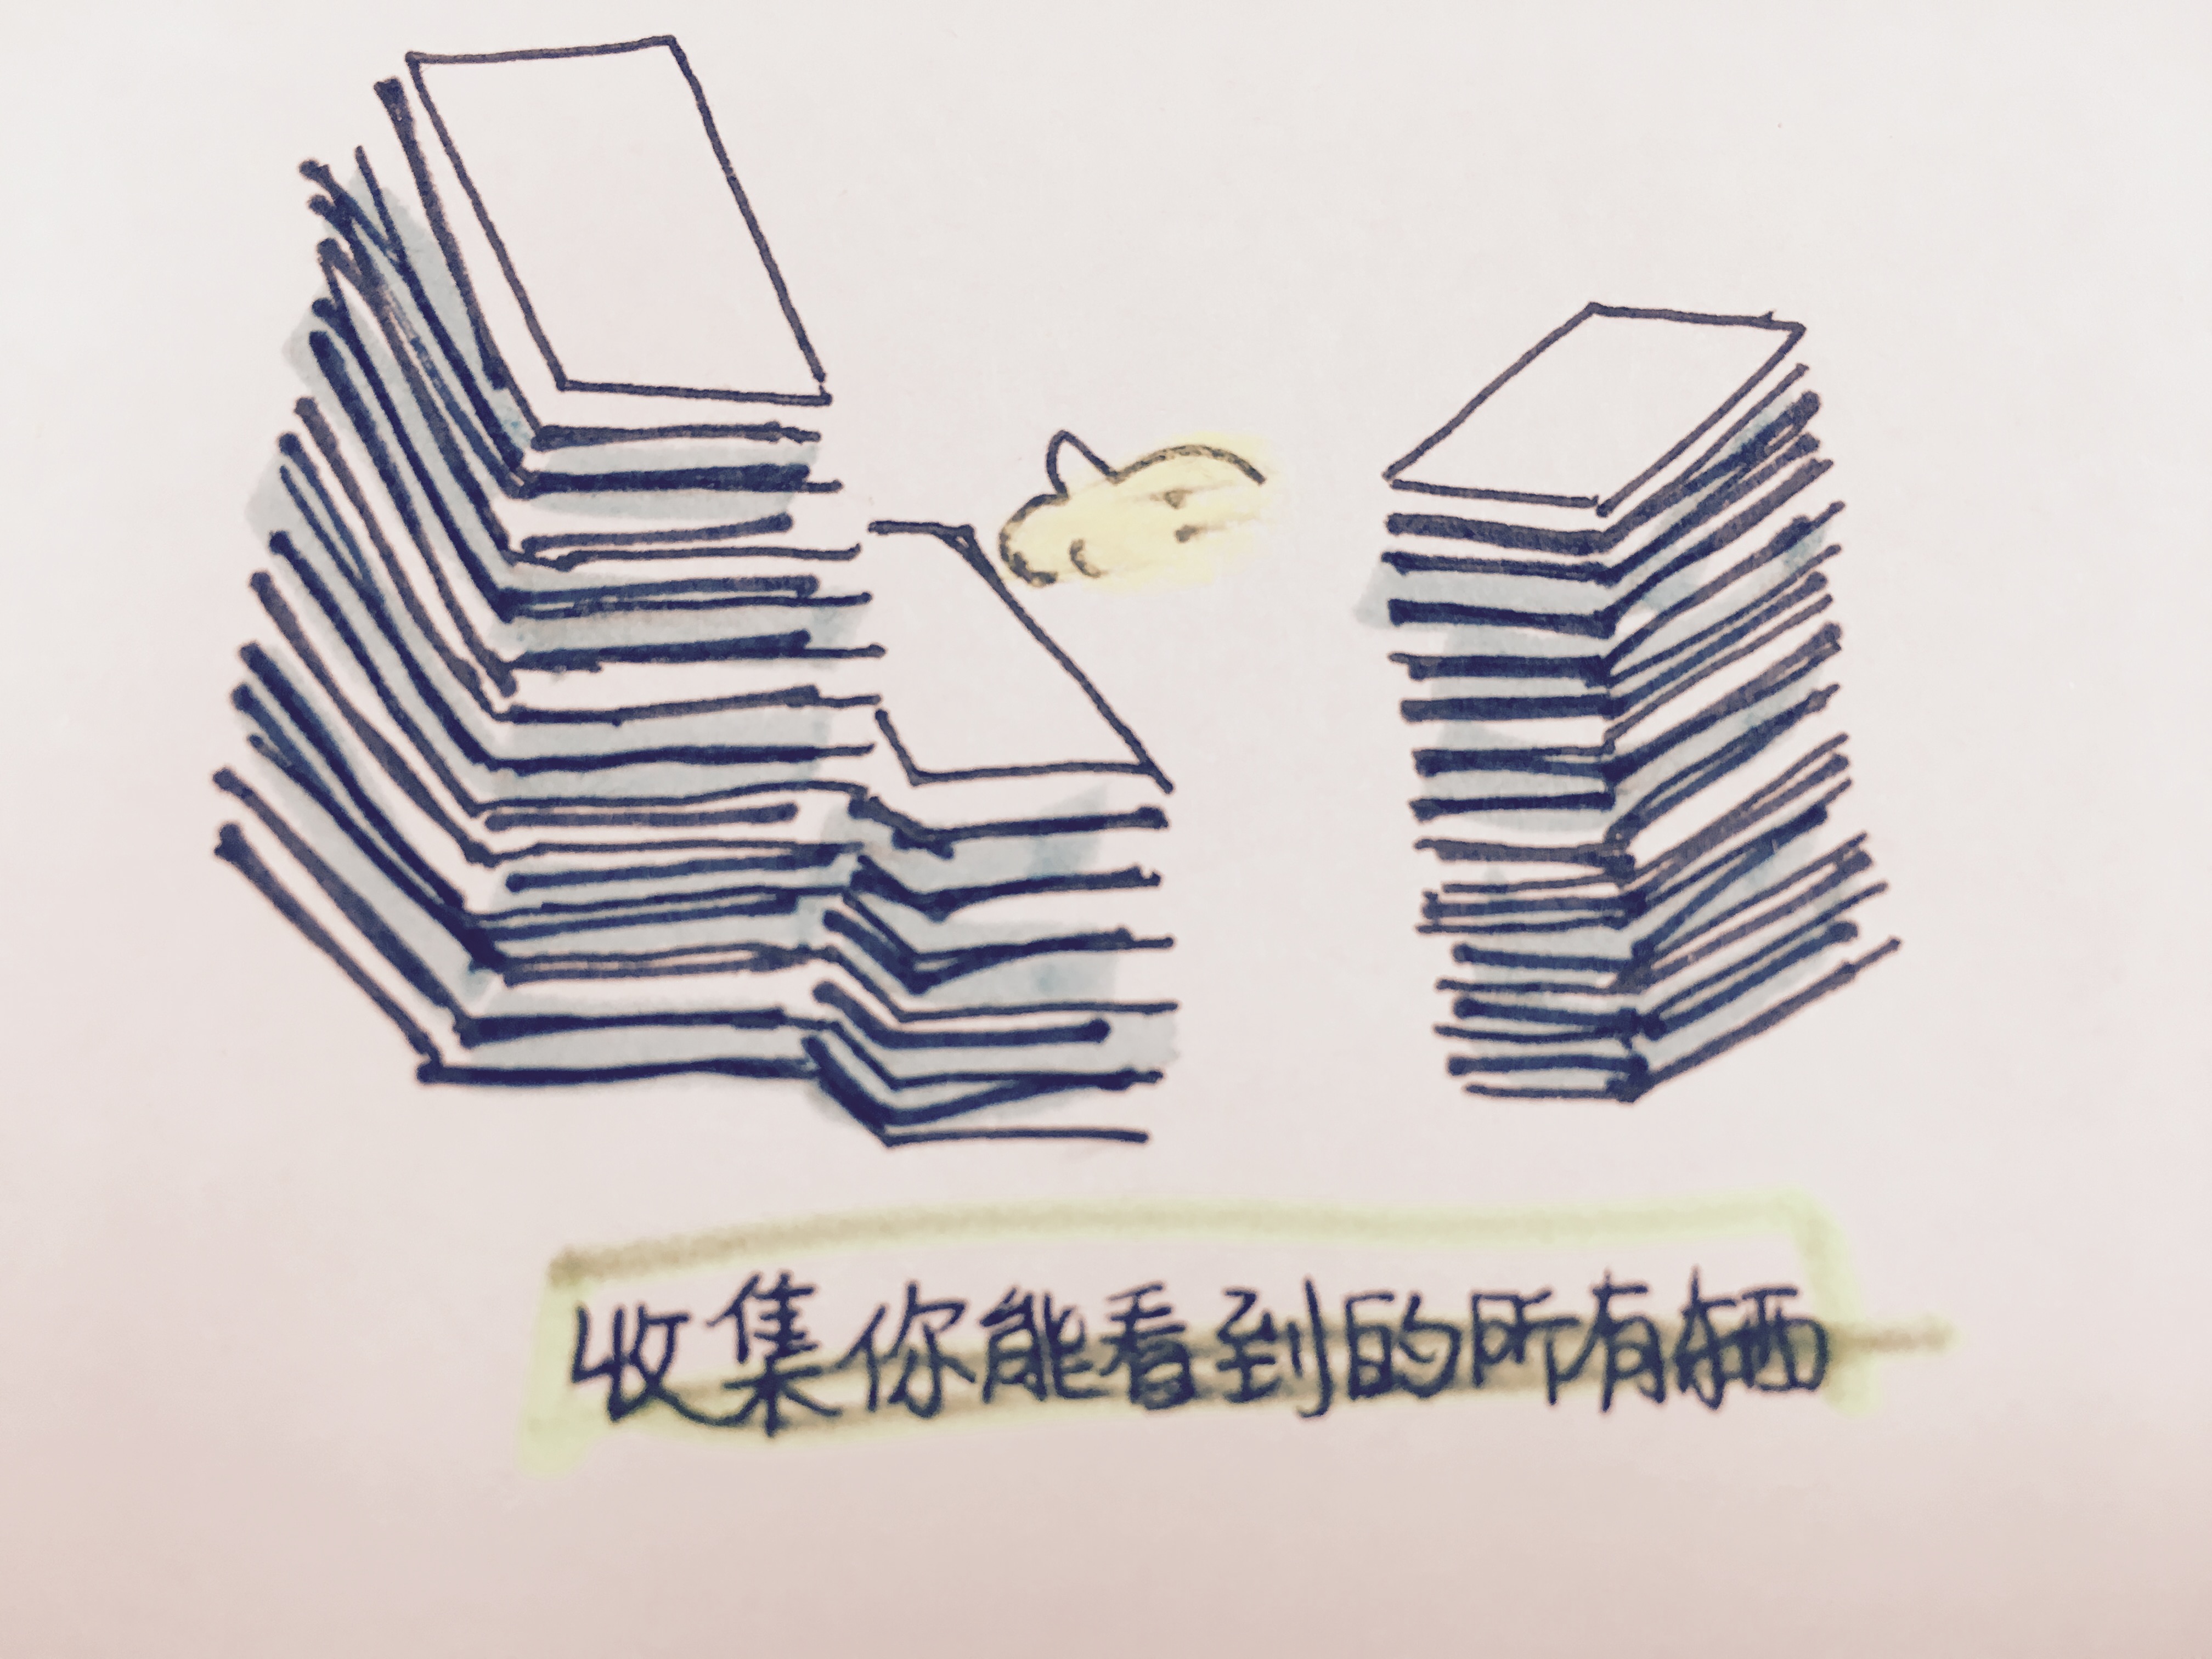 收集你能看到的所有东西